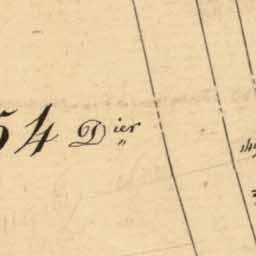 54 Dier